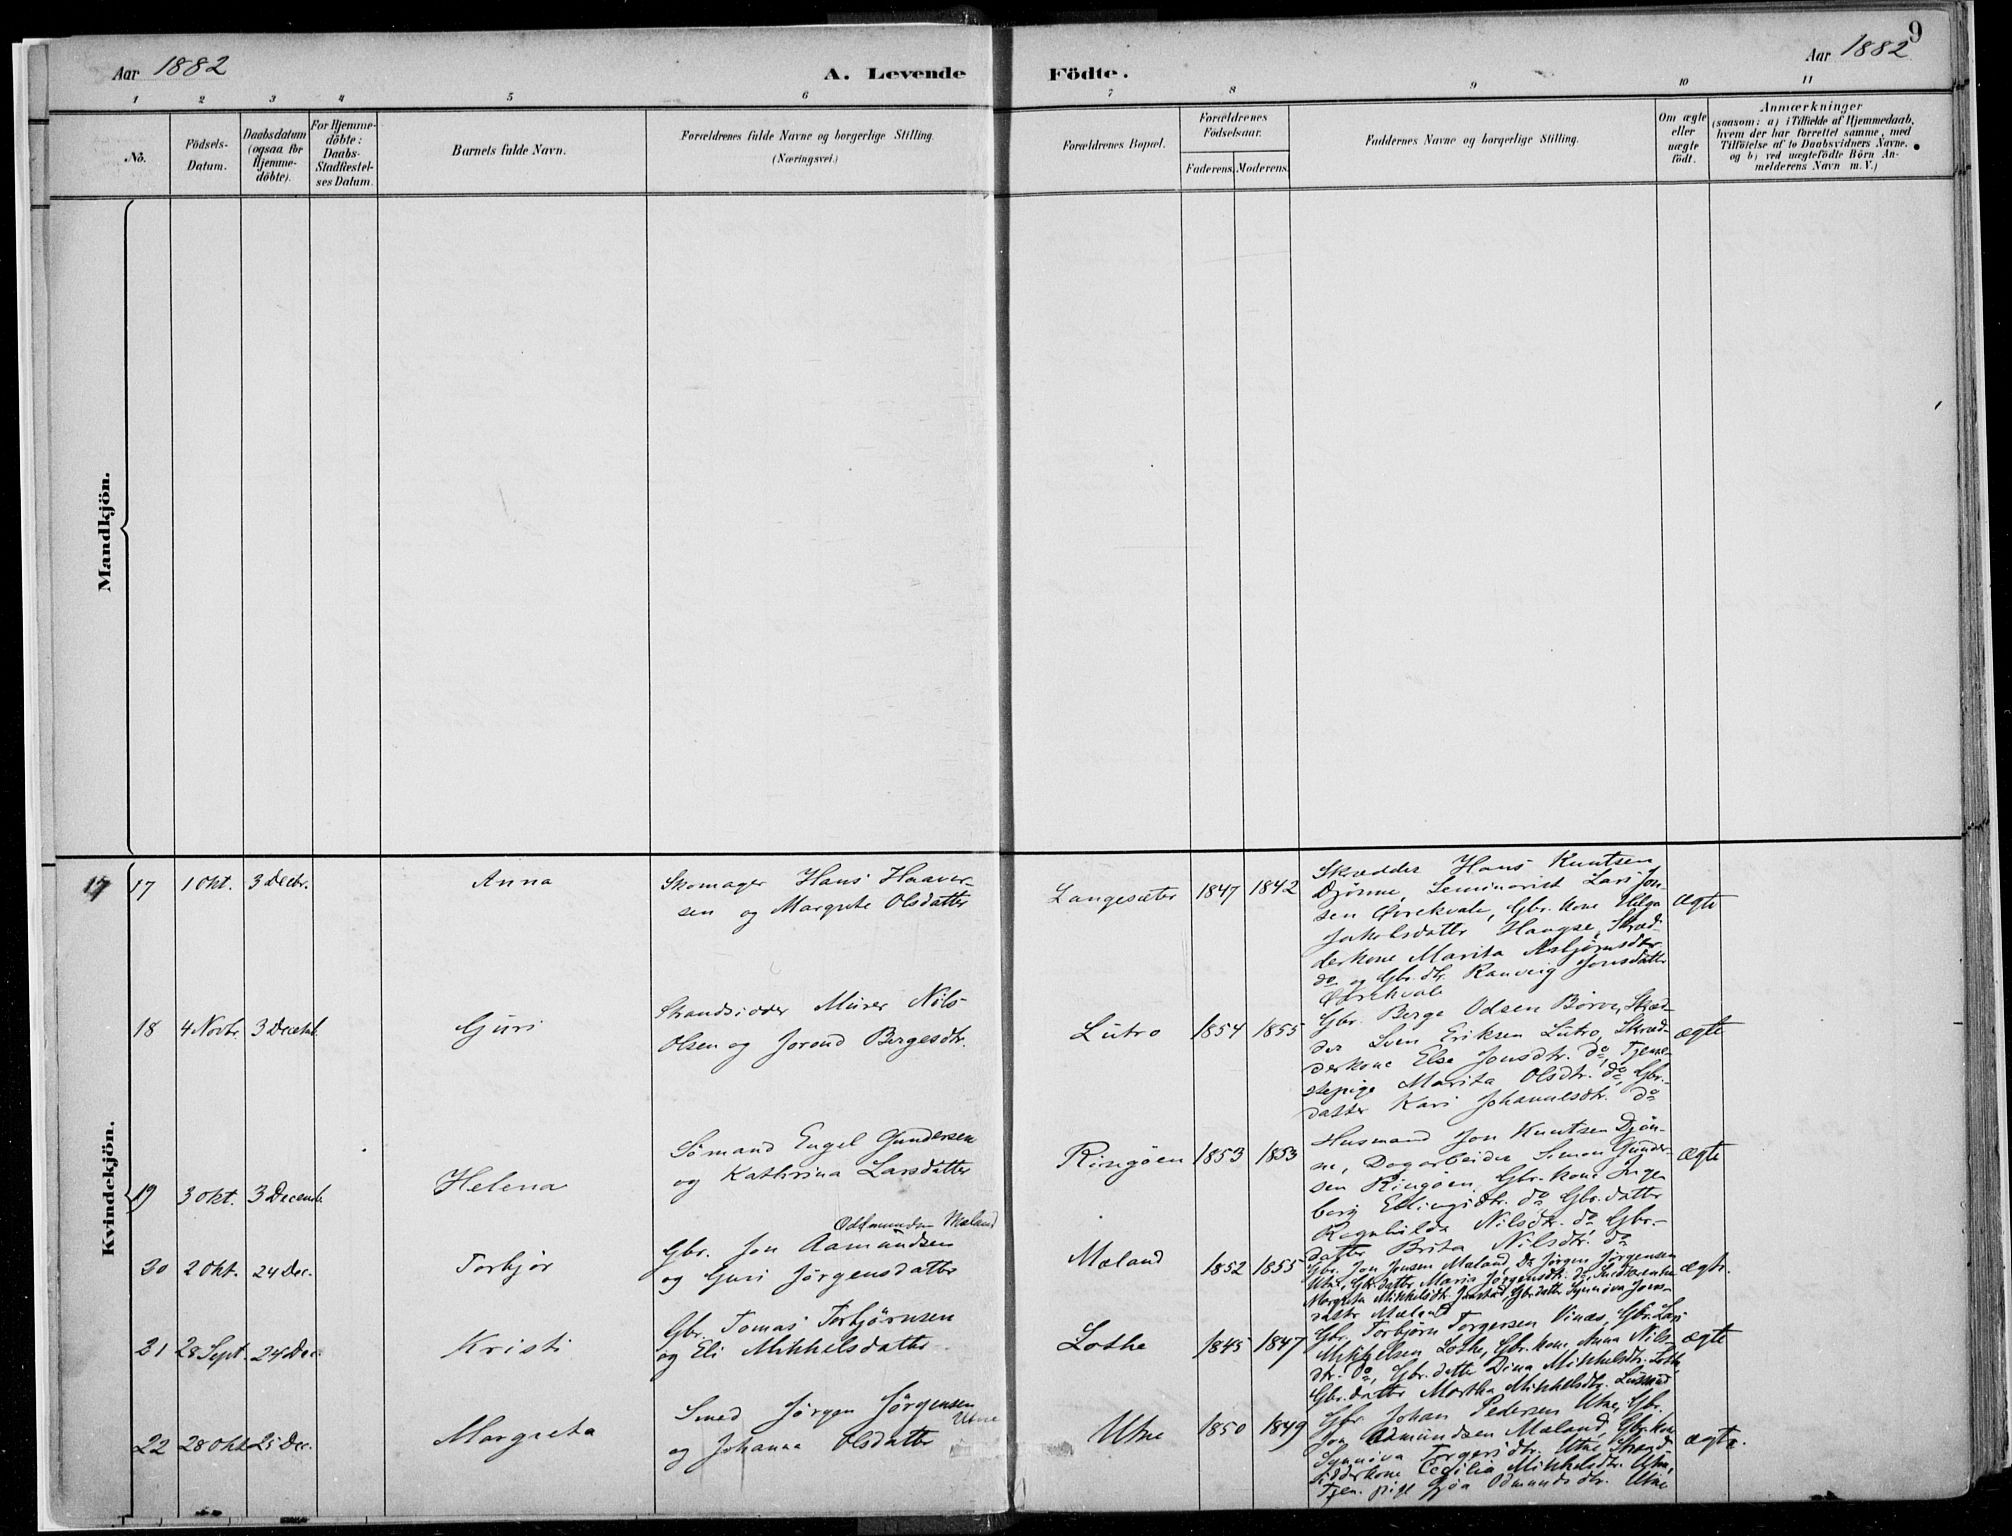 9
Aar 1882
A. Levende Födte.
Aar 1882
1 2 3 4 5 6 7 8 9 10 11
No.
Födsels-
Datum.
Daabsdatum
(ogsaa for
Hjemme-
döbte).
For Hjemme-
döbte:
Daabs-
Stadfæstel-
ses Datum.
Barnets fulde Navn.
Forældrenes fulde Navne og borgerlige Stilling.
(Næringsvei.)
Forældrenes Bopæl.
Forældrenes
Födselsaar.
Faderens. Moderens.
Faddernes Navne og borgerlige Stilling.
Om ægte
eller
uægte
födt.
Anmærkninger
(saasom: a) i Tilfælde af Hjemmedaab,
hvem der har forrettet samme, med
Tilföielse af to Daabsvidners Navne.
og b) ved uægtefödte Börn An-
melderens Navn m. V.)
Mandkjön.
Kvindekjön.
17 17 1 Okt. 3 Decbr.
Anna
Skomager Hans Haaver-
sen og Margrete Olsdatter
Langesæter 1847 1842
Skrædder Hans Knutsen
Djönne, Seminarist Lars Jon-
sen Øvrekvale, Gbr. kone Helga
Jakobsdatter Haugse, Skræd-
derkone Marita Asbjørnsdtr
do og Gbr. dtr. Ranveig Jonsdatter
Øvrekvale
ægte
18 4 Novbr. 3 Decemb.
Guri
Strandsidder Murer Nils
Olsen og Jorond Bergesdtr.
Lutro 1854 1855
Gbr. Berge Odsen Børve, Skræd-
der Sven Eriksen Lutro, Skræd-
derkone Else Jonsdtr. do, Tjene-
stepige Marita Olsdtr. do, Gbr.-
datter Kari Johannesdtr. do
ægte
19 3 Okt. 3 Decemb.
Helena
Sømand Engel Gundersen
og Kathrina Larsdatter
Ringøen 1853 1853
Husmand Jon Knutsen Djøn-
ne, Dagarbeider Simon Gunder-
sen Ringøen, Gbr. kone Inge-
borg Ellingsdtr. do, Gbr. datter
Ragnhilda Nilsdtr. do, Gbr.-
datter Brita Nilsdtr. do
ægte
20 2 Okt. 24 Dec.
Torbjør
Odtmundsen Mæland
Gbr. Jon Aamundsen
og Guri Jørgensdatter
Mæland 1852 1855
Gbr. Jon Jonsen Mæland, Do Jørgen Jørgensen
Utne, Gbr. datter Maria Jørgensdtr. do,
Margreta Mikkelsdtr. Gbr. datter Synnøva Jons-
datter Mæland
ægte.
21 28 Sept. 24 Dec.
Kristi
Gbr. Tomas Torbjørnsen
og Eli Mikkelsdatter
Lothe 1845 1847
Gbr. Torbjørn Torgersen Vines, Gbr. Lars
Mikkelsen Lothe, Gbr. kone Anna Nils-
dtr. do, Gbr. datter Dina Mikkelsdtr. Lothe
Gbr. datter Martha Mikkelsdtr.
ægte
22 28 Okt. 25 Dec.
Margreta
Smed Jørgen Jørgensen
Utne
og Johanna Olsdatter
Utne 1850 1849
Gbr. Johan Pedersen Utne, Gbr.
Jon Odmundsen Mæland, Gbr. kone
Synniva Torgersdtr. Utne, Strand-
sidderkone Cecilia Mikkelsdtr. Utne,
Tjen. pige Gjøa Odmundsdtr. Utne
ægte.